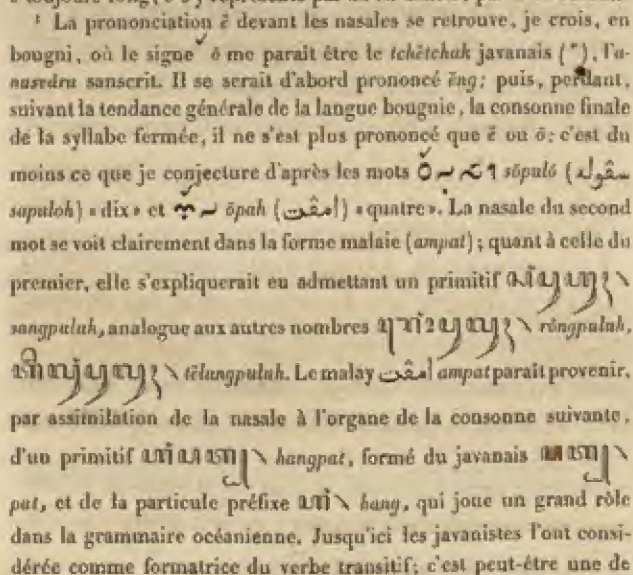 ¹ La prononciation ĕ devant les nasales se retrouve, je crois, en
bougni, où le signe ˇ ŏ me paraît être le tchĕtchak javanais (ꦁ), l'a-
nasvdra sanscrit. Il se serait d'abord prononcé ĕng; puis, perdant,
suivant la tendance générale de la langue bouguie, la consonne finale
de la syllabe fermée, il ne s'est plus prononcé que ĕ ou ŏ; c'est du
moins ce que je conjecture d'après les mots sŏpuló (سڤوله
sapuloh) « dix » et ŏpah (امڤت) « quatre ». La nasale du second
mot se voit clairement dans la forme malaie (ampat); quant à celle du
premier, elle s'expliquerait en admettant un primitif
sangpuluh, analogue aux autres nombres rôngpuluh,
tĕlungpuluh. Le malay امڤت ampat paraît provenir,
par assimilation de la nasale à l'organe de la consonne suivante,
d'un primitif hangpat, formé du javanais
pat, et de la particule préfixe hang, qui joue un grand rôle
dans la grammaire océanienne. Jusqu'ici les javanistes l'ont consi-
dérée comme formatrice du verbe transitif; c'est peut-être une de